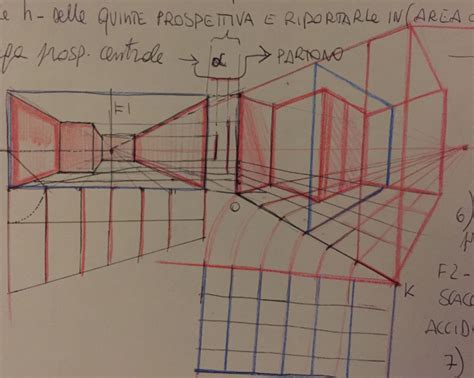 e h- delle QUINTE PROSPETTIVA E RIPORTARLE IN (AREA
prosp. centrale → α → PARTONO
F1
O
6)
F2-
K
SCACC
ACCID
7)